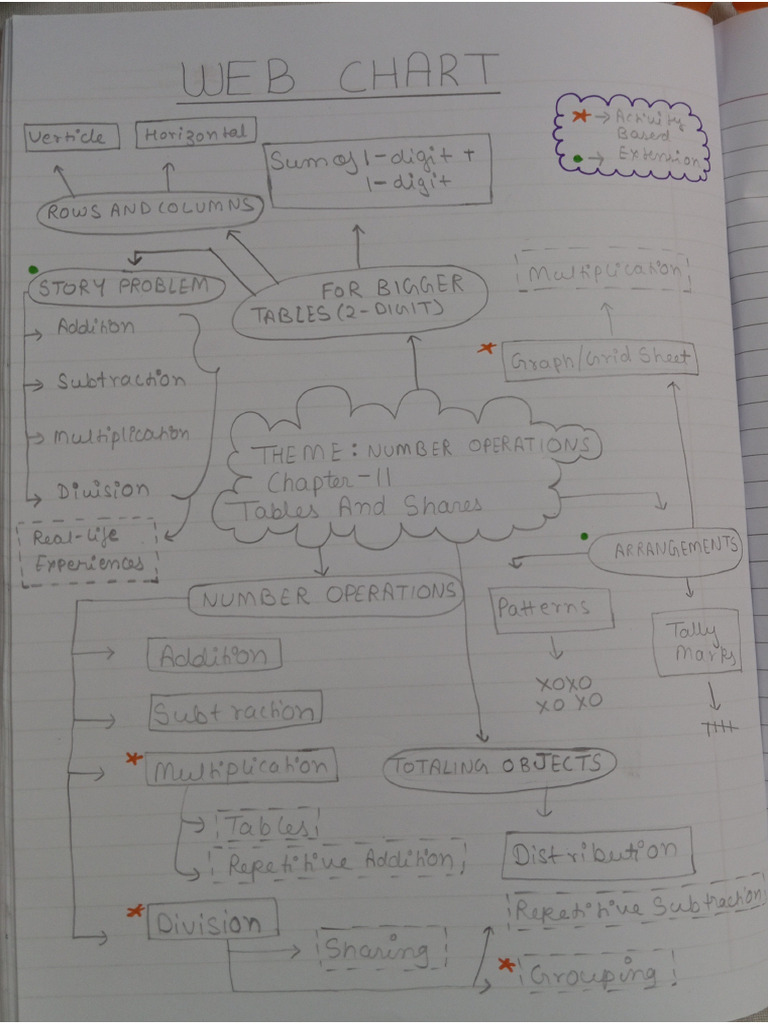 WEB CHART
Verticle
Horizontal
Sum of 1-digit +
1-digit
* → Activity
Based
• → Extension
ROWS AND COLUMNS
STORY PROBLEM
FOR BIGGER
TABLES (2-DIGIT)
Multiplication
Graph/Grid Sheet
Addition
Subtraction
Multiplication
Division
Real-life
Experiences
THEME: NUMBER OPERATIONS
Chapter-11
Tables And Shares
ARRANGEMENTS
NUMBER OPERATIONS
Patterns
XOXO
XO XO
Tally
Marks
Addition
Subtraction
Multiplication
Tables
Repetitive Addition
Division
Sharing
TOTALING OBJECTS
Distribution
Repetitive Subtraction
Grouping